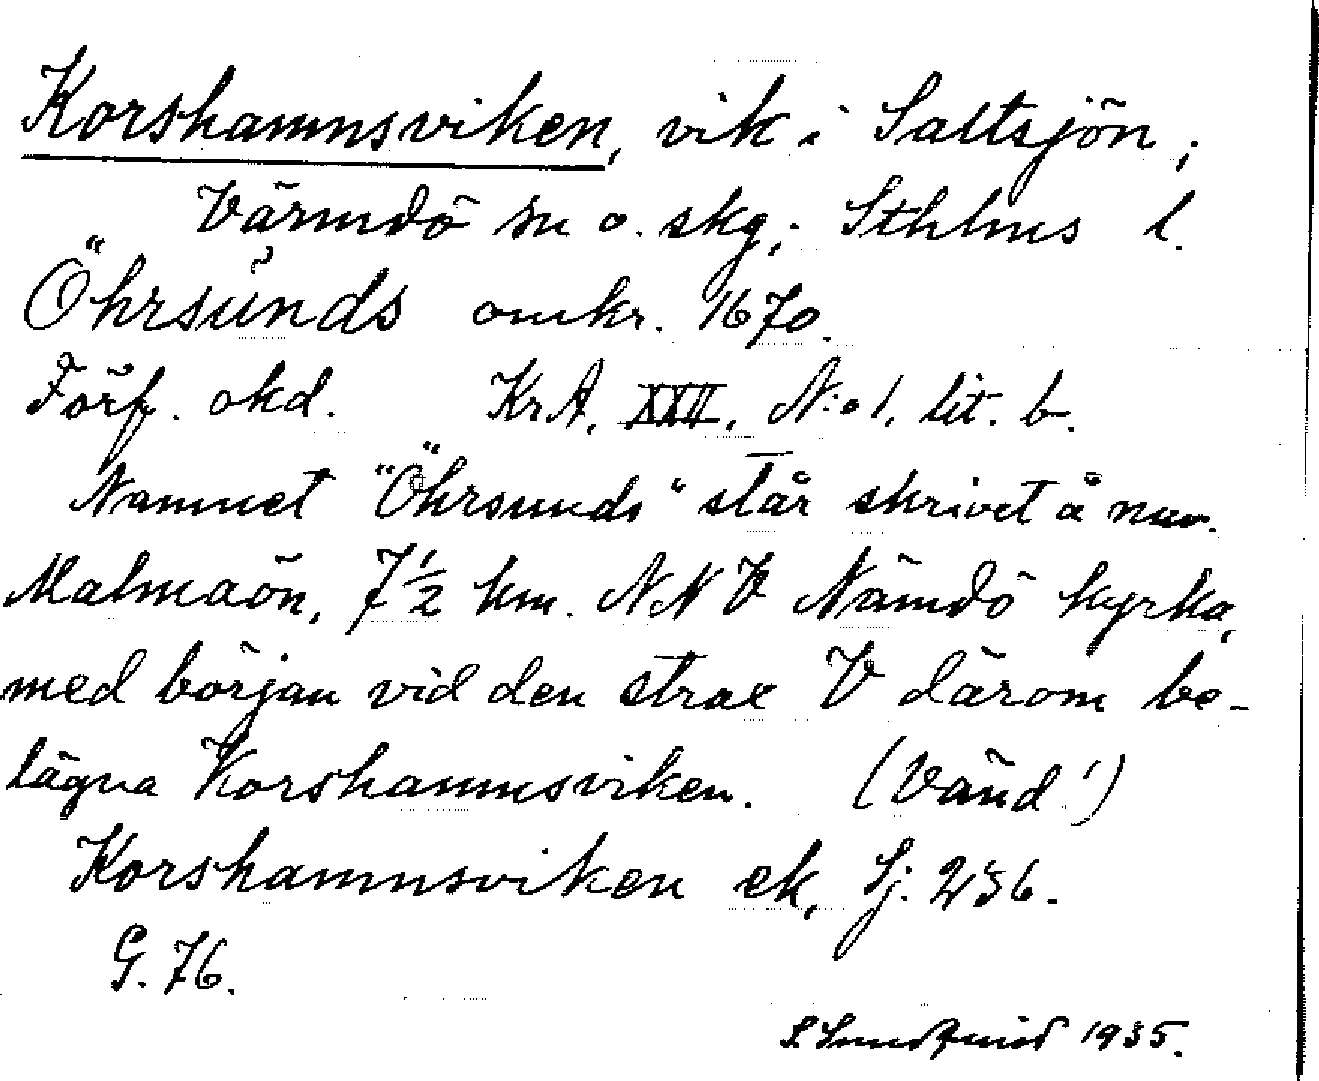 Korshamnsviken, vik i Saltsjön,
Värmdö sn o. skg, Sthlms l.
Öhrsŭnds omkr. 1670.
Förf. okd. KrA. XXII. N:o 1. lit. b.
Namnet "Öhrsunds" står skrivet å nuv.
Malmaön, 7 1/2 km. NNV Nämdö kyrka,
med början vid den strax V därom be-
lägna Korshamnsviken. (Vänd!)
Korshamnsviken ek, Sj. 236.
G. 76.
S. Sundqvist 1935.